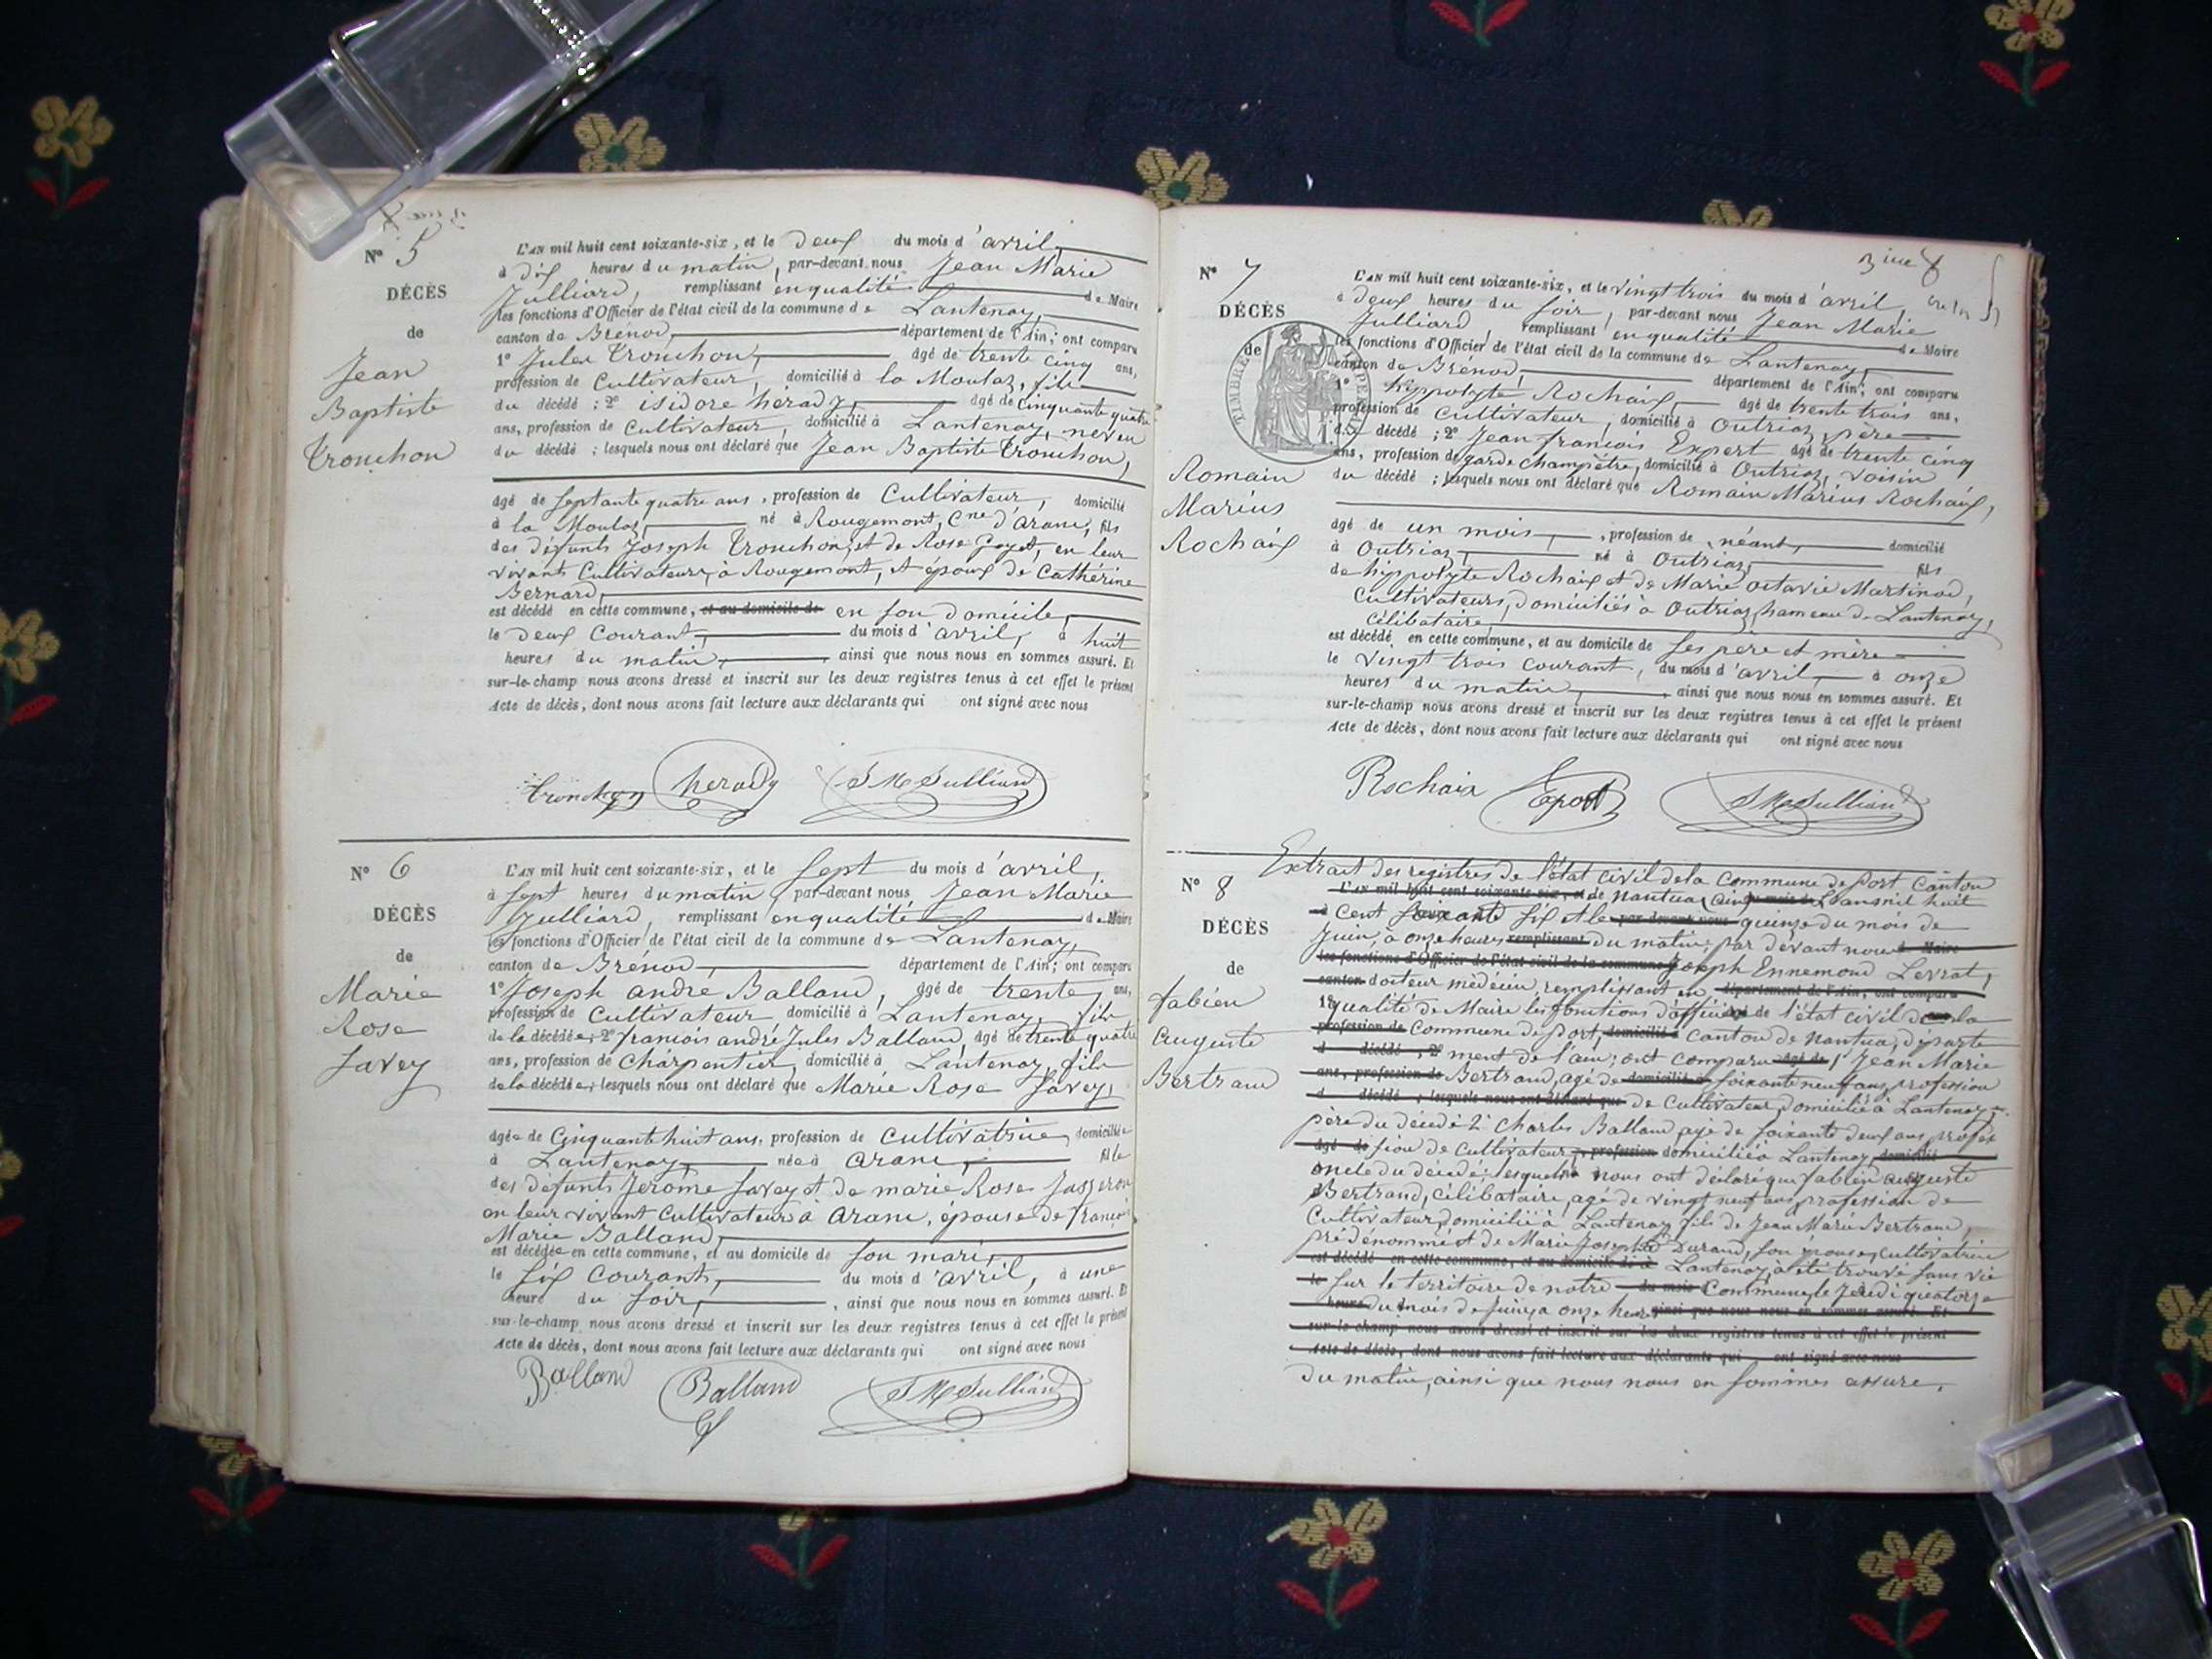 N° 5
DÉCÈS
de
Jean
Baptiste
Tronchon
L'AN mil huit cent soixante-six, et le deux du mois d'avril,
à dix heures du matin, par-devant nous Jean Marie
Julliard, remplissant en qualité de Maire
les fonctions d'Officier de l'état civil de la commune de Lantenay,
canton de Brénod, département de l'Ain; ont comparu
1° Jules Tronchon, âgé de trente cinq ans,
profession de Cultivateur, domicilié à la Moulaz, fils
du décédé; 2° isidore herady, âgé de cinquante quatre
ans, profession de Cultivateur, domicilié à Lantenay, neveu
du décédé; lesquels nous ont déclaré que Jean Baptiste Tronchon,
âgé de septante quatre ans, profession de Cultivateur, domicilié
à la Moulaz, né à Rougemont, Cne d'Aranc, fils
des défunts Joseph Tronchon, et de Rose Goyet, en leur
vivants Cultivateurs, à Rougemont, et époux de Cathérine
Bernard,
est décédé en cette commune, et au domicile de en son domicile,
le deux courant, du mois d'avril, à huit
heures du matin, ainsi que nous nous en sommes assuré. Et
sur-le-champ nous avons dressé et inscrit sur les deux registres tenus à cet effet le présent
Acte de décès, dont nous avons fait lecture aux déclarants qui ont signé avec nous
tronchon herady J M Julliard
N° 6
DÉCÈS
de
Marie
Rose
Savey
L'AN mil huit cent soixante-six, et le sept du mois d'avril,
à sept heures du matin, par-devant nous Jean Marie
Julliard, remplissant en qualité de Maire
les fonctions d'Officier de l'état civil de la commune de Lantenay,
canton de Brénod, département de l'Ain; ont comparu
1° Joseph andré Balland, âgé de trente ans,
profession de Cultivateur domicilié à Lantenay, fils
de la décédée; 2° françois andré Jules Balland, âgé de trente quatre
ans, profession de Charpentier, domicilié à Lantenay, fils
de la décédée; lesquels nous ont déclaré que Marie Rose Savey,
âgée de Cinquante huit ans, profession de cultivatrice, domiciliée
à Lantenay, née à Aranc, fille
des défunts Jerome Savey et de marie Rose Jasseron
en leur vivant Cultivateurs à Aranc, épouse de françois
Marie Balland,
est décédée en cette commune, et au domicile de son mari,
le six courant, du mois d'avril, à une
heure du soir, ainsi que nous nous en sommes assuré. Et
sur-le-champ nous avons dressé et inscrit sur les deux registres tenus à cet effet le présent
Acte de décès, dont nous avons fait lecture aux déclarants qui ont signé avec nous
Balland Balland J M Julliard
N° 7
DÉCÈS
de
TIMBRE IMPERIAL
Romain
Marius
Rochaix
L'AN mil huit cent soixante-six, et le vingt trois du mois d'avril,
à deux heures du soir, par-devant nous Jean Marie
Julliard, remplissant en qualité de Maire
les fonctions d'Officier de l'état civil de la commune de Lantenay,
canton de Brénod, département de l'Ain; ont comparu
1° hippolyte Rochaix, âgé de trente trois ans,
profession de Cultivateur, domicilié à Outriaz, père
du décédé; 2° Jean françois Expert âgé de trente cinq
ans, profession de garde champêtre, domicilié à Outriaz, voisin
du décédé; lesquels nous ont déclaré que Romain Marius Rochaix,
âgé de un mois, profession de néant, domicilié
à Outriaz, né à Outriaz, fils
de hippolyte Rochaix et de Marie octavie Martinod,
Cultivateurs, domiciliés à Outriaz, hameau de Lantenay,
célibataire,
est décédé en cette commune, et au domicile de ses père et mère
le vingt trois courant, du mois d'avril, à onze
heures du matin, ainsi que nous nous en sommes assuré. Et
sur-le-champ nous avons dressé et inscrit sur les deux registres tenus à cet effet le présent
Acte de décès, dont nous avons fait lecture aux déclarants qui ont signé avec nous
Rochaix J M Julliard
N° 8
DÉCÈS
de
fabien
auguste
Bertrand
Extrait des registres de l'état civil de la Commune de Port Canton
de Nantua, L'an mil huit
cent soixante six et le quinze du mois de
Juin, à onze heures du matin, par devant nous
Joseph Ennemond Levrat,
docteur médecin, remplissant en
qualité de Maire les fonctions d'officier de l'état civil de la
Commune de Port, canton de Nantua, départe
ment de l'ain; ont comparu 1° Jean Marie
Bertrand, agé de soixante neuf ans, profession
de Cultivateur, domicilié à Lantenay,
père du décédé 2° Charles Balland, agé de soixante deux ans, profes
sion de Cultivateur, domicilié à Lantenay,
oncle du décédé; lesquels nous ont déclaré que fabien auguste
Bertrand, célibataire, agé de vingt neuf ans, profession de
Cultivateur, domicilié à Lantenay, fils de Jean Marie Bertrand,
prédénommé et de Marie Josephte Durand, son épouse, cultivatrice
à Lantenay, a été trouvé sans vie
sur le territoire de notre Commune, le Jeudi quatorze
du mois de Juin, à onze heures
du matin, ainsi que nous nous en sommes assuré.